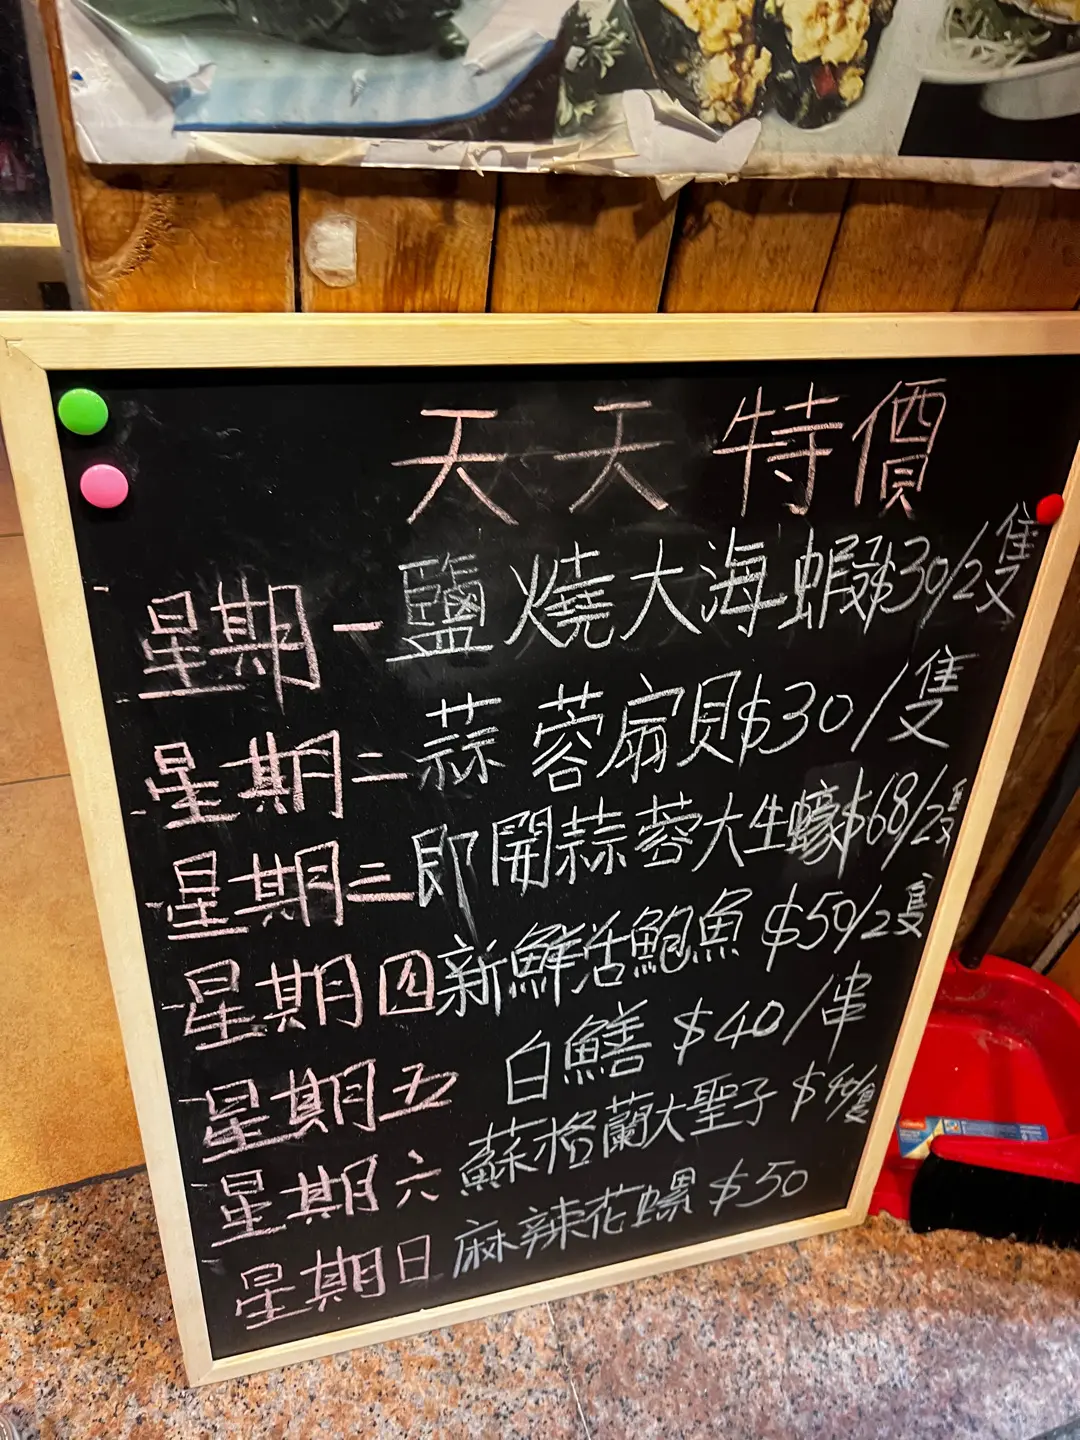 天天特價
星期一 鹽燒大海蝦 $30/2隻
星期二 蒜蓉扇貝 $30/隻
星期三 即開蒜蓉大生蠔 $68/2隻
星期四 新鮮活鮑魚 $50/2隻
星期五 白鱔 $40/串
星期六 蘇格蘭大聖子 $40/隻
星期日 麻辣花螺 $50